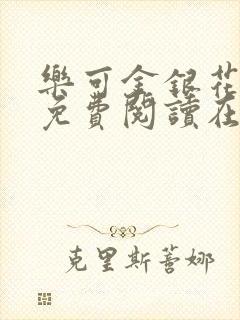 樂可金銀花
免費閱讀在
克里斯蒂娜